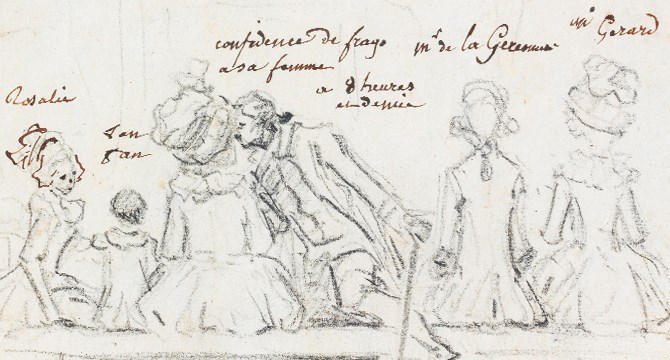 Rosalie
fan
fan
confidence de frago
a sa femme
a 8 heures
et demie
mr de la Geremme
mle Gerard